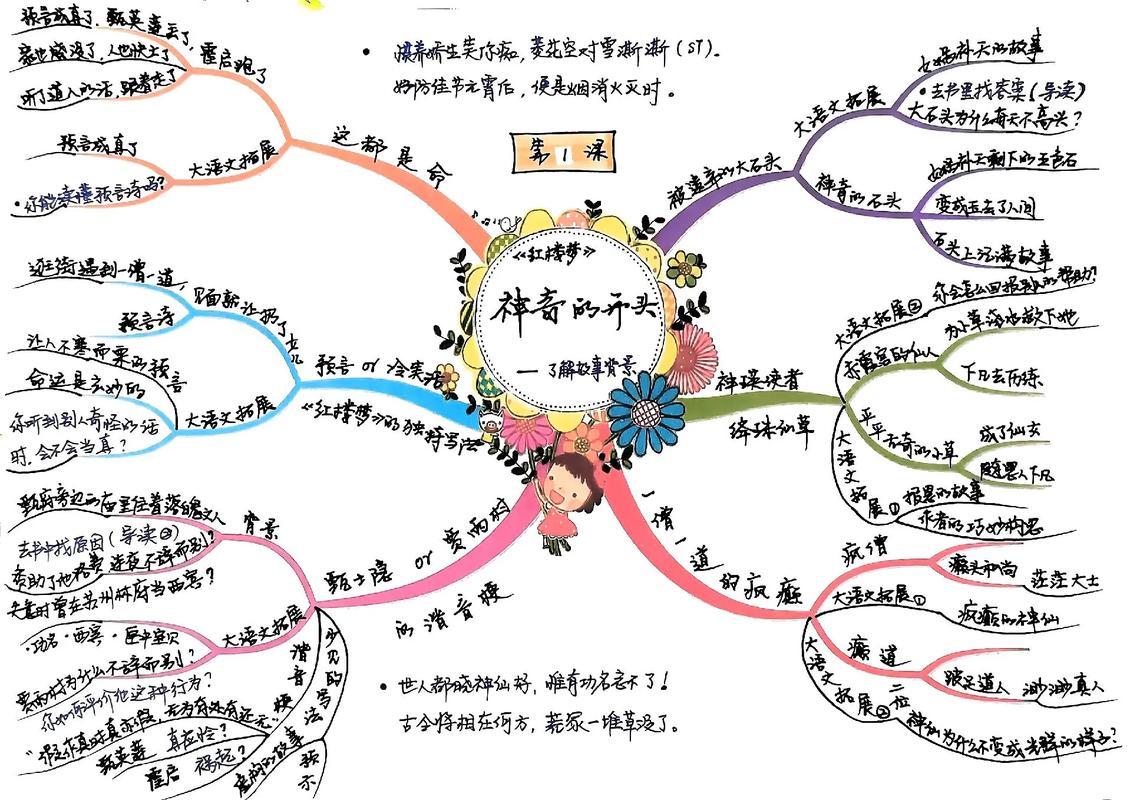 预言成真了，甄英莲丢了，
家也烧没了，人也快亡了
听了道人的话，跟着走了
霍启跑了
预言成真了
·你能读懂预言诗吗？
大语文拓展
这都是命
• 娇生笑你痴，菱花空对雪澌澌（ST）。
好防佳节元霄后，便是烟消火灭时。
第1课
《红楼梦》
神奇的开头
— 了解故事背景
被遗弃的大石头
大语文拓展
女娲补天的故事
• 去书里找答案（导读）
大石头为什么每天不高兴？
神奇的石头
女娲补天剩下的五色石
变成玉去了人间
石头上记满故事
逛街遇到一僧一道，
预言诗
见面就让扔了女儿
让人不寒而栗的预言
命运是玄妙的
你听到别人奇怪的话
时，会不会当真？
大语文拓展
预言 or 冷笑话
《红楼梦》的独特写法
神瑛侍者
绛珠仙草
大语文拓展②
赤霞宫的仙人
为小草浇水救下她
下凡去历练
平平无奇的小草
成了仙女
随恩人下凡
大语文拓展①
报恩的故事
作者的巧妙构思
甄府旁边的庙里住着落魄文人
背景
去书中找原因（导读②）
资助了他路费 连夜不辞而别？
大语文拓展
·功名·西宾·匣中宝贝
贾雨村为什么不辞而别？
你如何评价他这种行为？
“假作真时真亦假，无为有处有还无”
甄英莲 真应怜？
霍启 祸起？
谐音梗
少见的写法
虚构的故事
预示
甄士隐 or 贾雨村
的谐音梗
一僧一道的疯癫
疯僧
癞头和尚 茫茫大士
大语文拓展①
疯癫的神仙
癫道
跛足道人 渺渺真人
大语文拓展②
二位神仙为什么不变成光鲜的样子？
• 世人都晓神仙好，惟有功名忘不了！
古今将相在何方，荒冢一堆草没了。